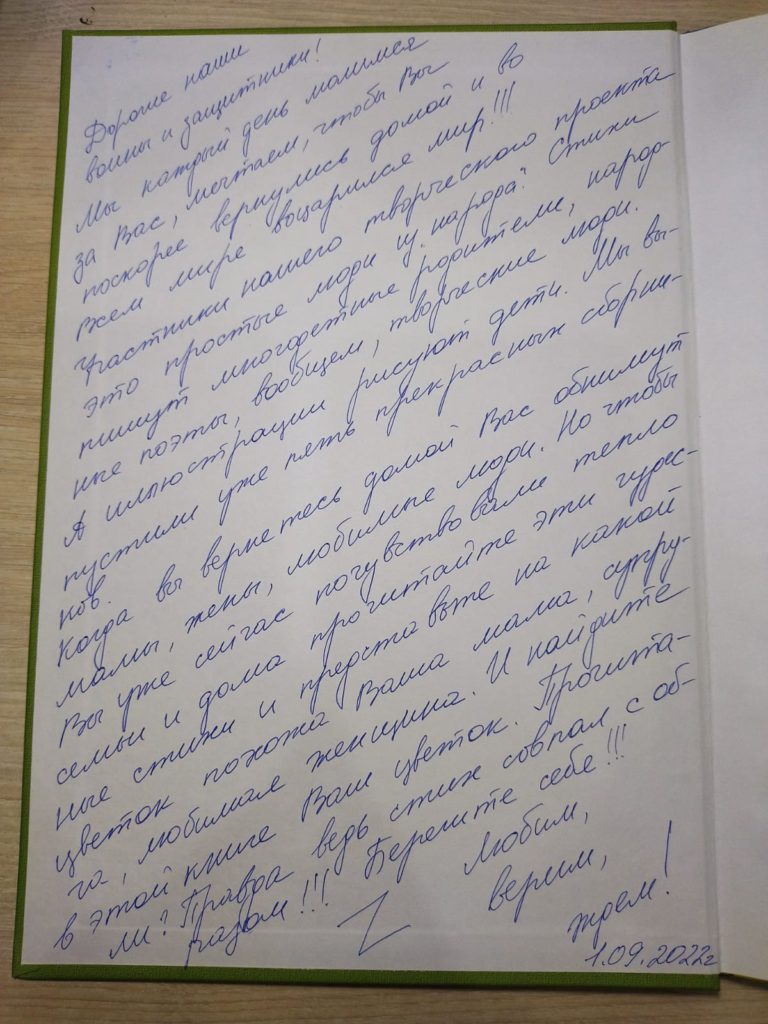 Дорогие наши
воины и защитники!
Мы каждый день молимся
за Вас, мечтаем, чтобы Вы
поскорее вернулись домой и во
всем мире воцарился мир!!!
Участники нашего творческого проекта
это простые люди из "народа". Стихи
пишут многодетные родители, народ-
ные поэты, вообщем, творческие люди.
А иллюстрации рисуют дети. Мы вы-
пустили уже пять прекрасных сборни-
ков.
Когда вы вернетесь домой Вас обнимут
мамы, жены, любимые люди. Но чтобы
Вы уже сейчас почувствовали тепло
семьи и дома прочитайте эти чудес-
ные стихи и представьте на какой
цветок похожа Ваша мама, супру-
га, любимая женщина. И найдите
в этой книге Ваш цветок. Прочита-
ли? Правда ведь стих совпал с об-
разом!!! Берегите себя!!!
Z Любим,
верим,
ждем!
1.09.2022г